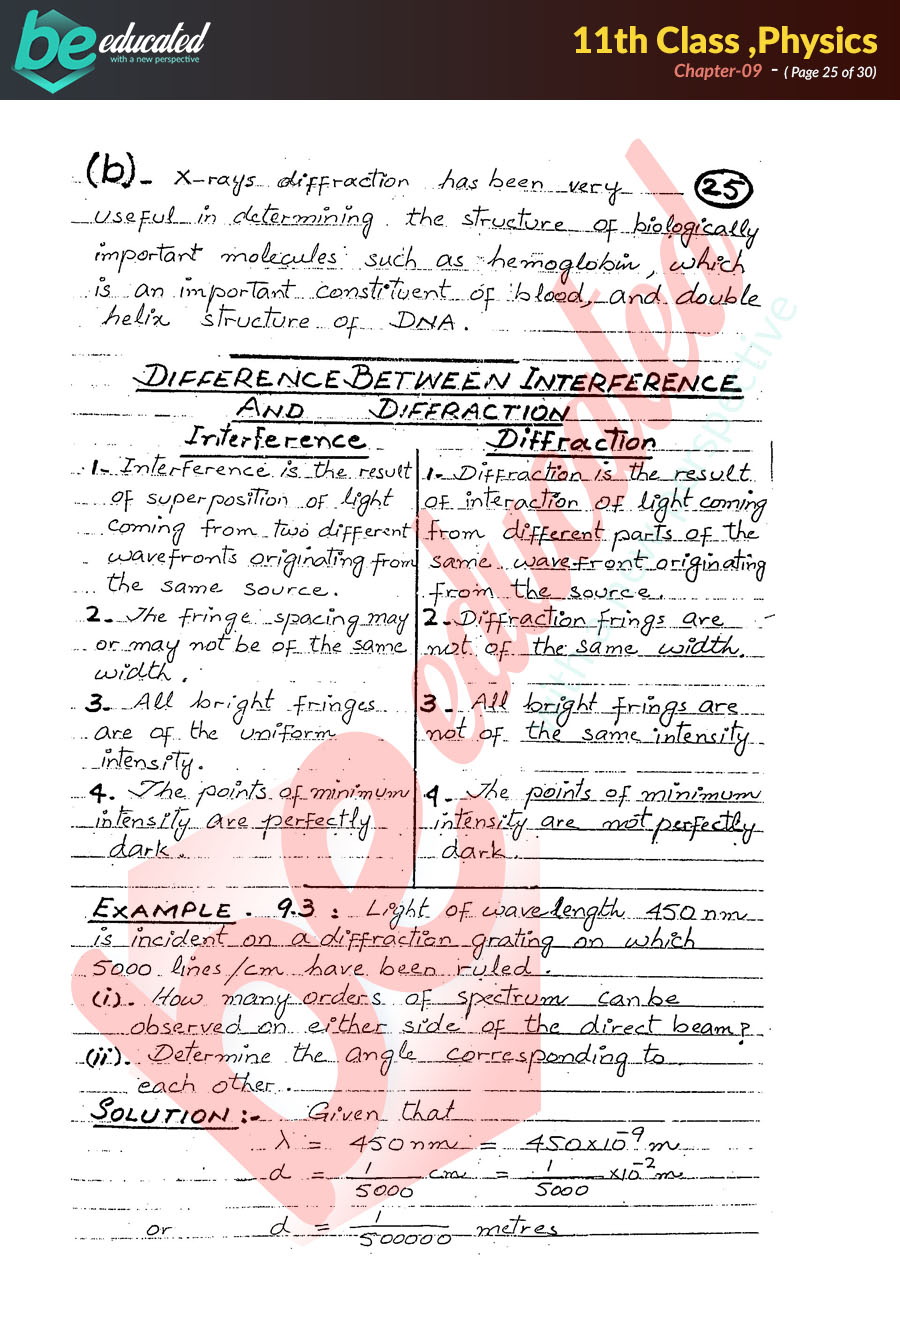 be educated
with a new perspective
11th Class ,Physics
Chapter-09 - ( Page 25 of 30)
(b)- X-rays diffraction has been very 25
useful in determining the structure of biologically
important molecules such as hemoglobin, which
is an important constituent of blood, and double
helix structure of DNA.
DIFFERENCE BETWEEN INTERFERENCE
AND DIFFRACTION
Interference
1- Interference is the result
of superposition of light
coming from two different
wavefronts originating from
the same source.
2- The fringe spacing may
or may not be of the same
width.
3- All bright fringes
are of the uniform
intensity.
4. The points of minimum
intensity are perfectly
dark.
Diffraction
1- Diffraction is the result
of interaction of light coming
from different parts of the
same wavefront originating
from the source.
2- Diffraction frings are
not of the same width.
3- All bright frings are
not of the same intensity
4- The points of minimum
intensity are not perfectly
dark.
EXAMPLE. 9.3: Light of wavelength 450 nm
is incident on a diffraction grating on which
5000 lines/cm have been ruled.
(i)- How many orders of spectrum can be
observed on either side of the direct beam?
(ii)- Determine the angle corresponding to
each other.
SOLUTION:- Given that
λ = 450 nm = 450x10⁻⁹ m
d = 1/5000 cm = 1/5000 x10⁻² m
or d = 1/500000 metres
be educated
with a new perspective